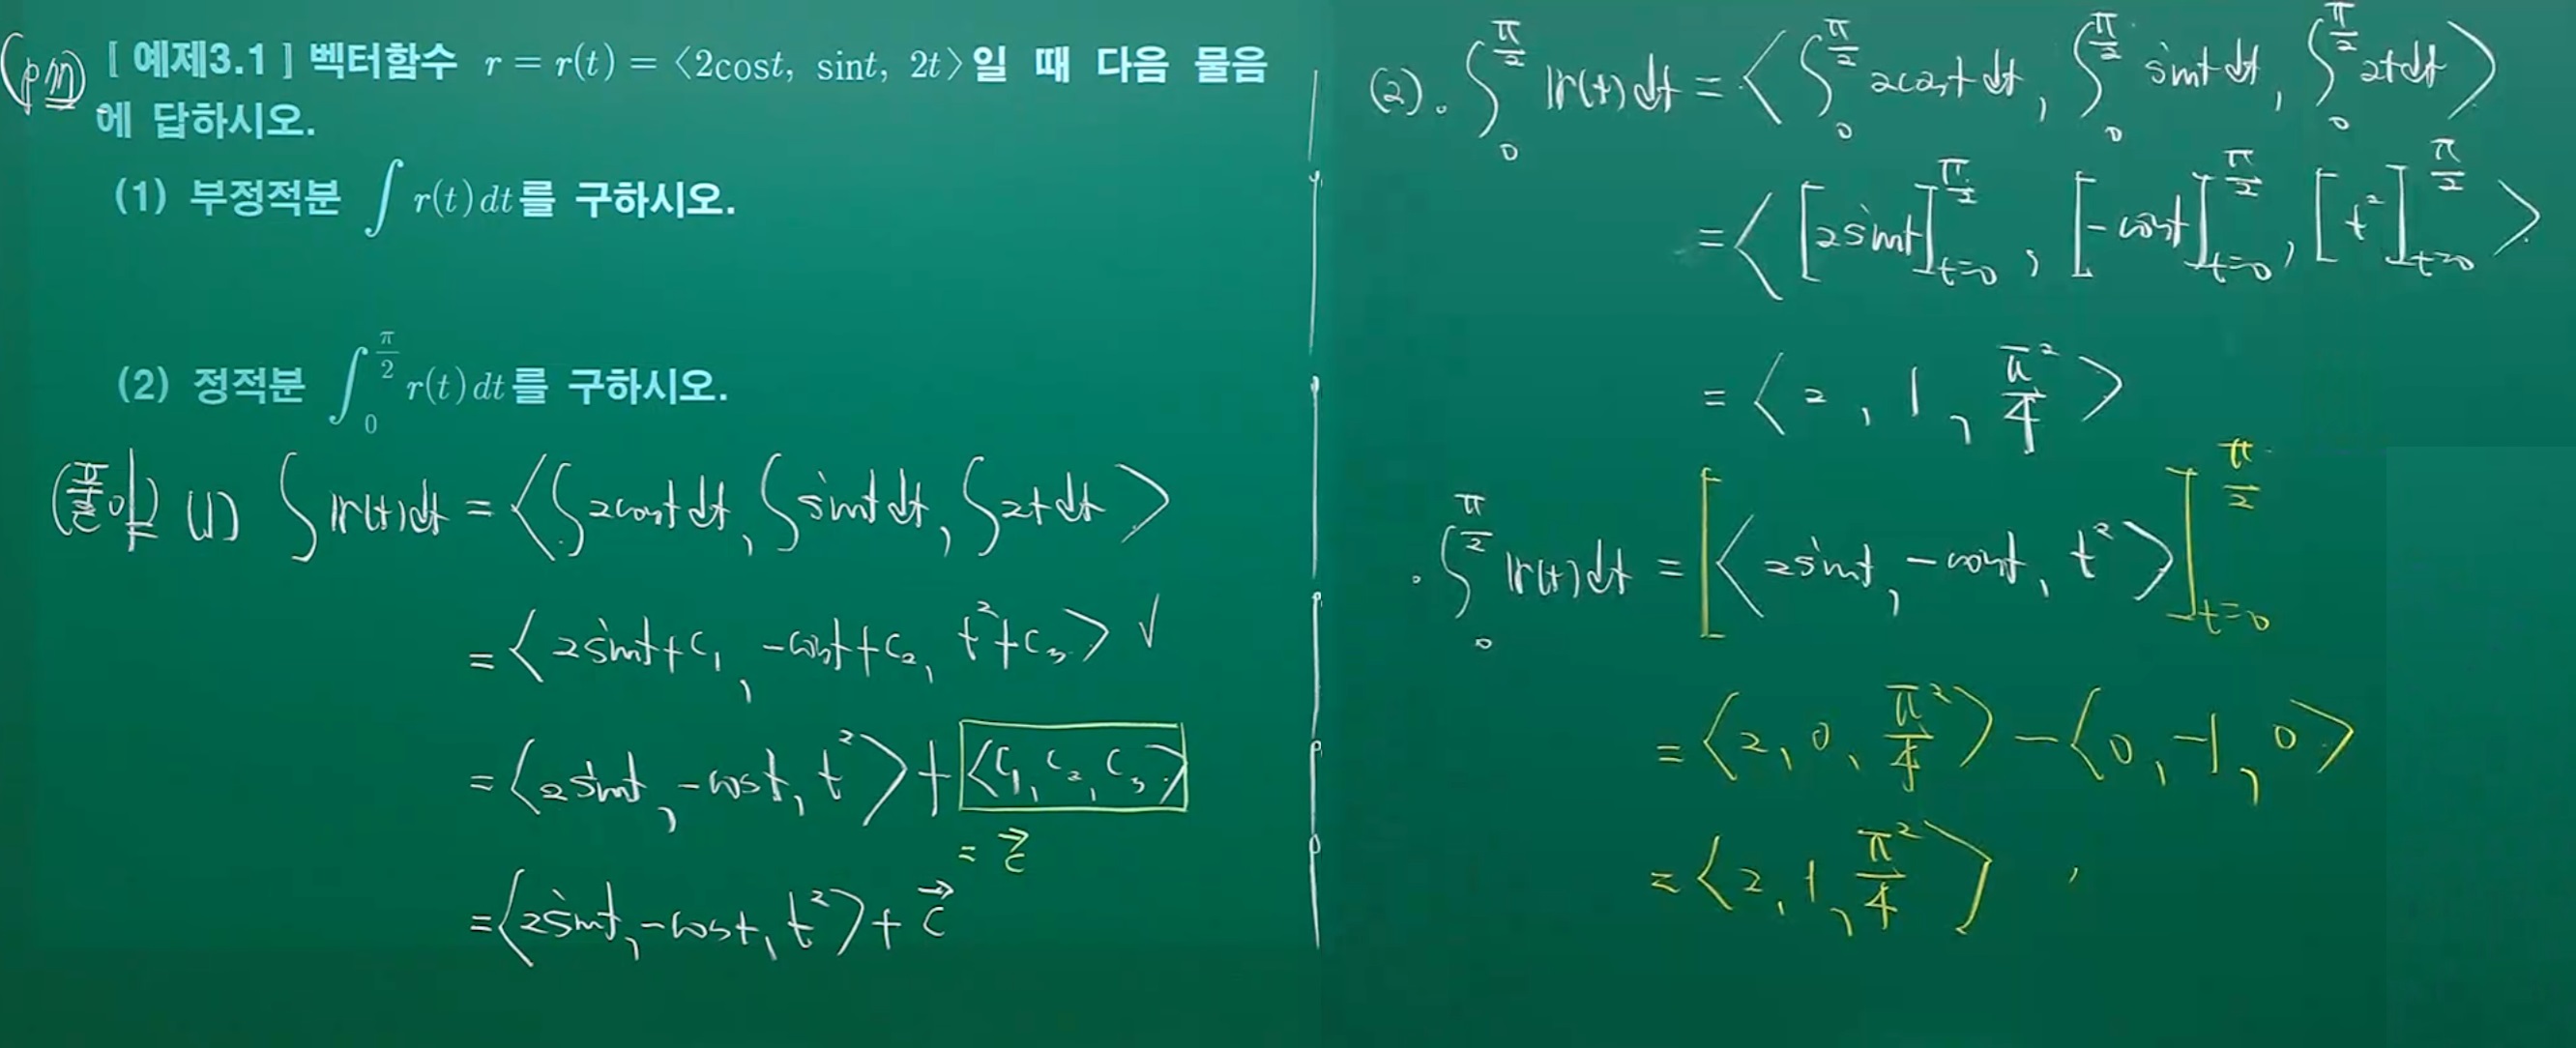 [ 예제3.1 ] 벡터함수 r = r(t) = ⟨2cost, sint, 2t⟩일 때 다음 물음
에 답하시오.
(1) 부정적분 ∫ r(t) dt를 구하시오.
(2) 정적분 ∫_0^{π/2} r(t) dt를 구하시오.
(풀이) (1) ∫ r(t)dt = ⟨∫2cost dt, ∫sint dt, ∫2t dt⟩
= ⟨2sint+c₁, -cost+c₂, t²+c₃⟩ √
= ⟨2sint, -cost, t²⟩ + ⟨c₁, c₂, c₃⟩
= c⃗
= ⟨2sint, -cost, t²⟩ + c⃗
(2). ∫_0^{π/2} r(t) dt = ⟨∫_0^{π/2} 2cost dt, ∫_0^{π/2} sint dt, ∫_0^{π/2} 2t dt⟩
= ⟨[2sint]_{t=0}^{π/2}, [-cost]_{t=0}^{π/2}, [t²]_{t=0}^{π/2}⟩
= ⟨2, 1, π²/4⟩
· ∫_0^{π/2} r(t) dt = [⟨2sint, -cost, t²⟩]_{t=0}^{π/2}
= ⟨2, 0, π²/4⟩ - ⟨0, -1, 0⟩
= ⟨2, 1, π²/4⟩